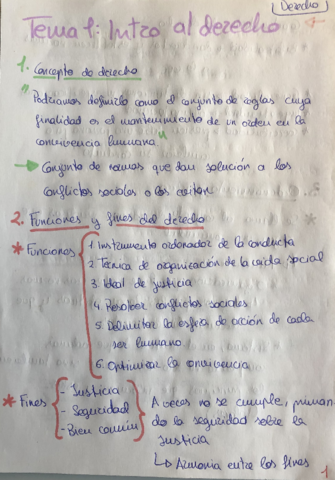 Derecho
Tema 1: Intro al derecho
1. Concepto de derecho
"Podríamos definirlo como el conjunto de reglas cuya
finalidad es el mantenimiento de un orden en la
convivencia humana"
→ Conjunto de normas que dan solución a los
conflictos sociales o los evitan.
2. Funciones y fines del derecho
* Funciones
1. Instrumento ordenador de la conducta
2. Técnica de organización de la vida social
3. Ideal de justicia
4. Resolver conflictos sociales
5. Delimitar la esfera de acción de cada
ser humano
6. Optimizar la convivencia
* Fines
- Justicia
- Seguridad
- Bien común
A veces no se cumple, priman-
do la seguridad sobre la
justicia
↳ Armonía entre los fines
1